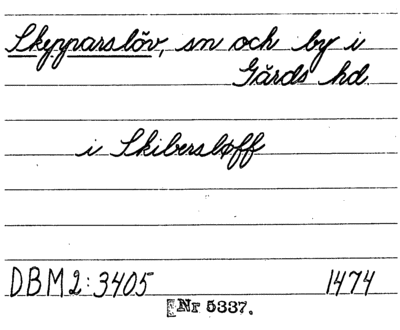 Skepparslöv, sn och by i
Gärds hd.
i Skibersløff
DBM 2:3405 1474
Nr 5337.